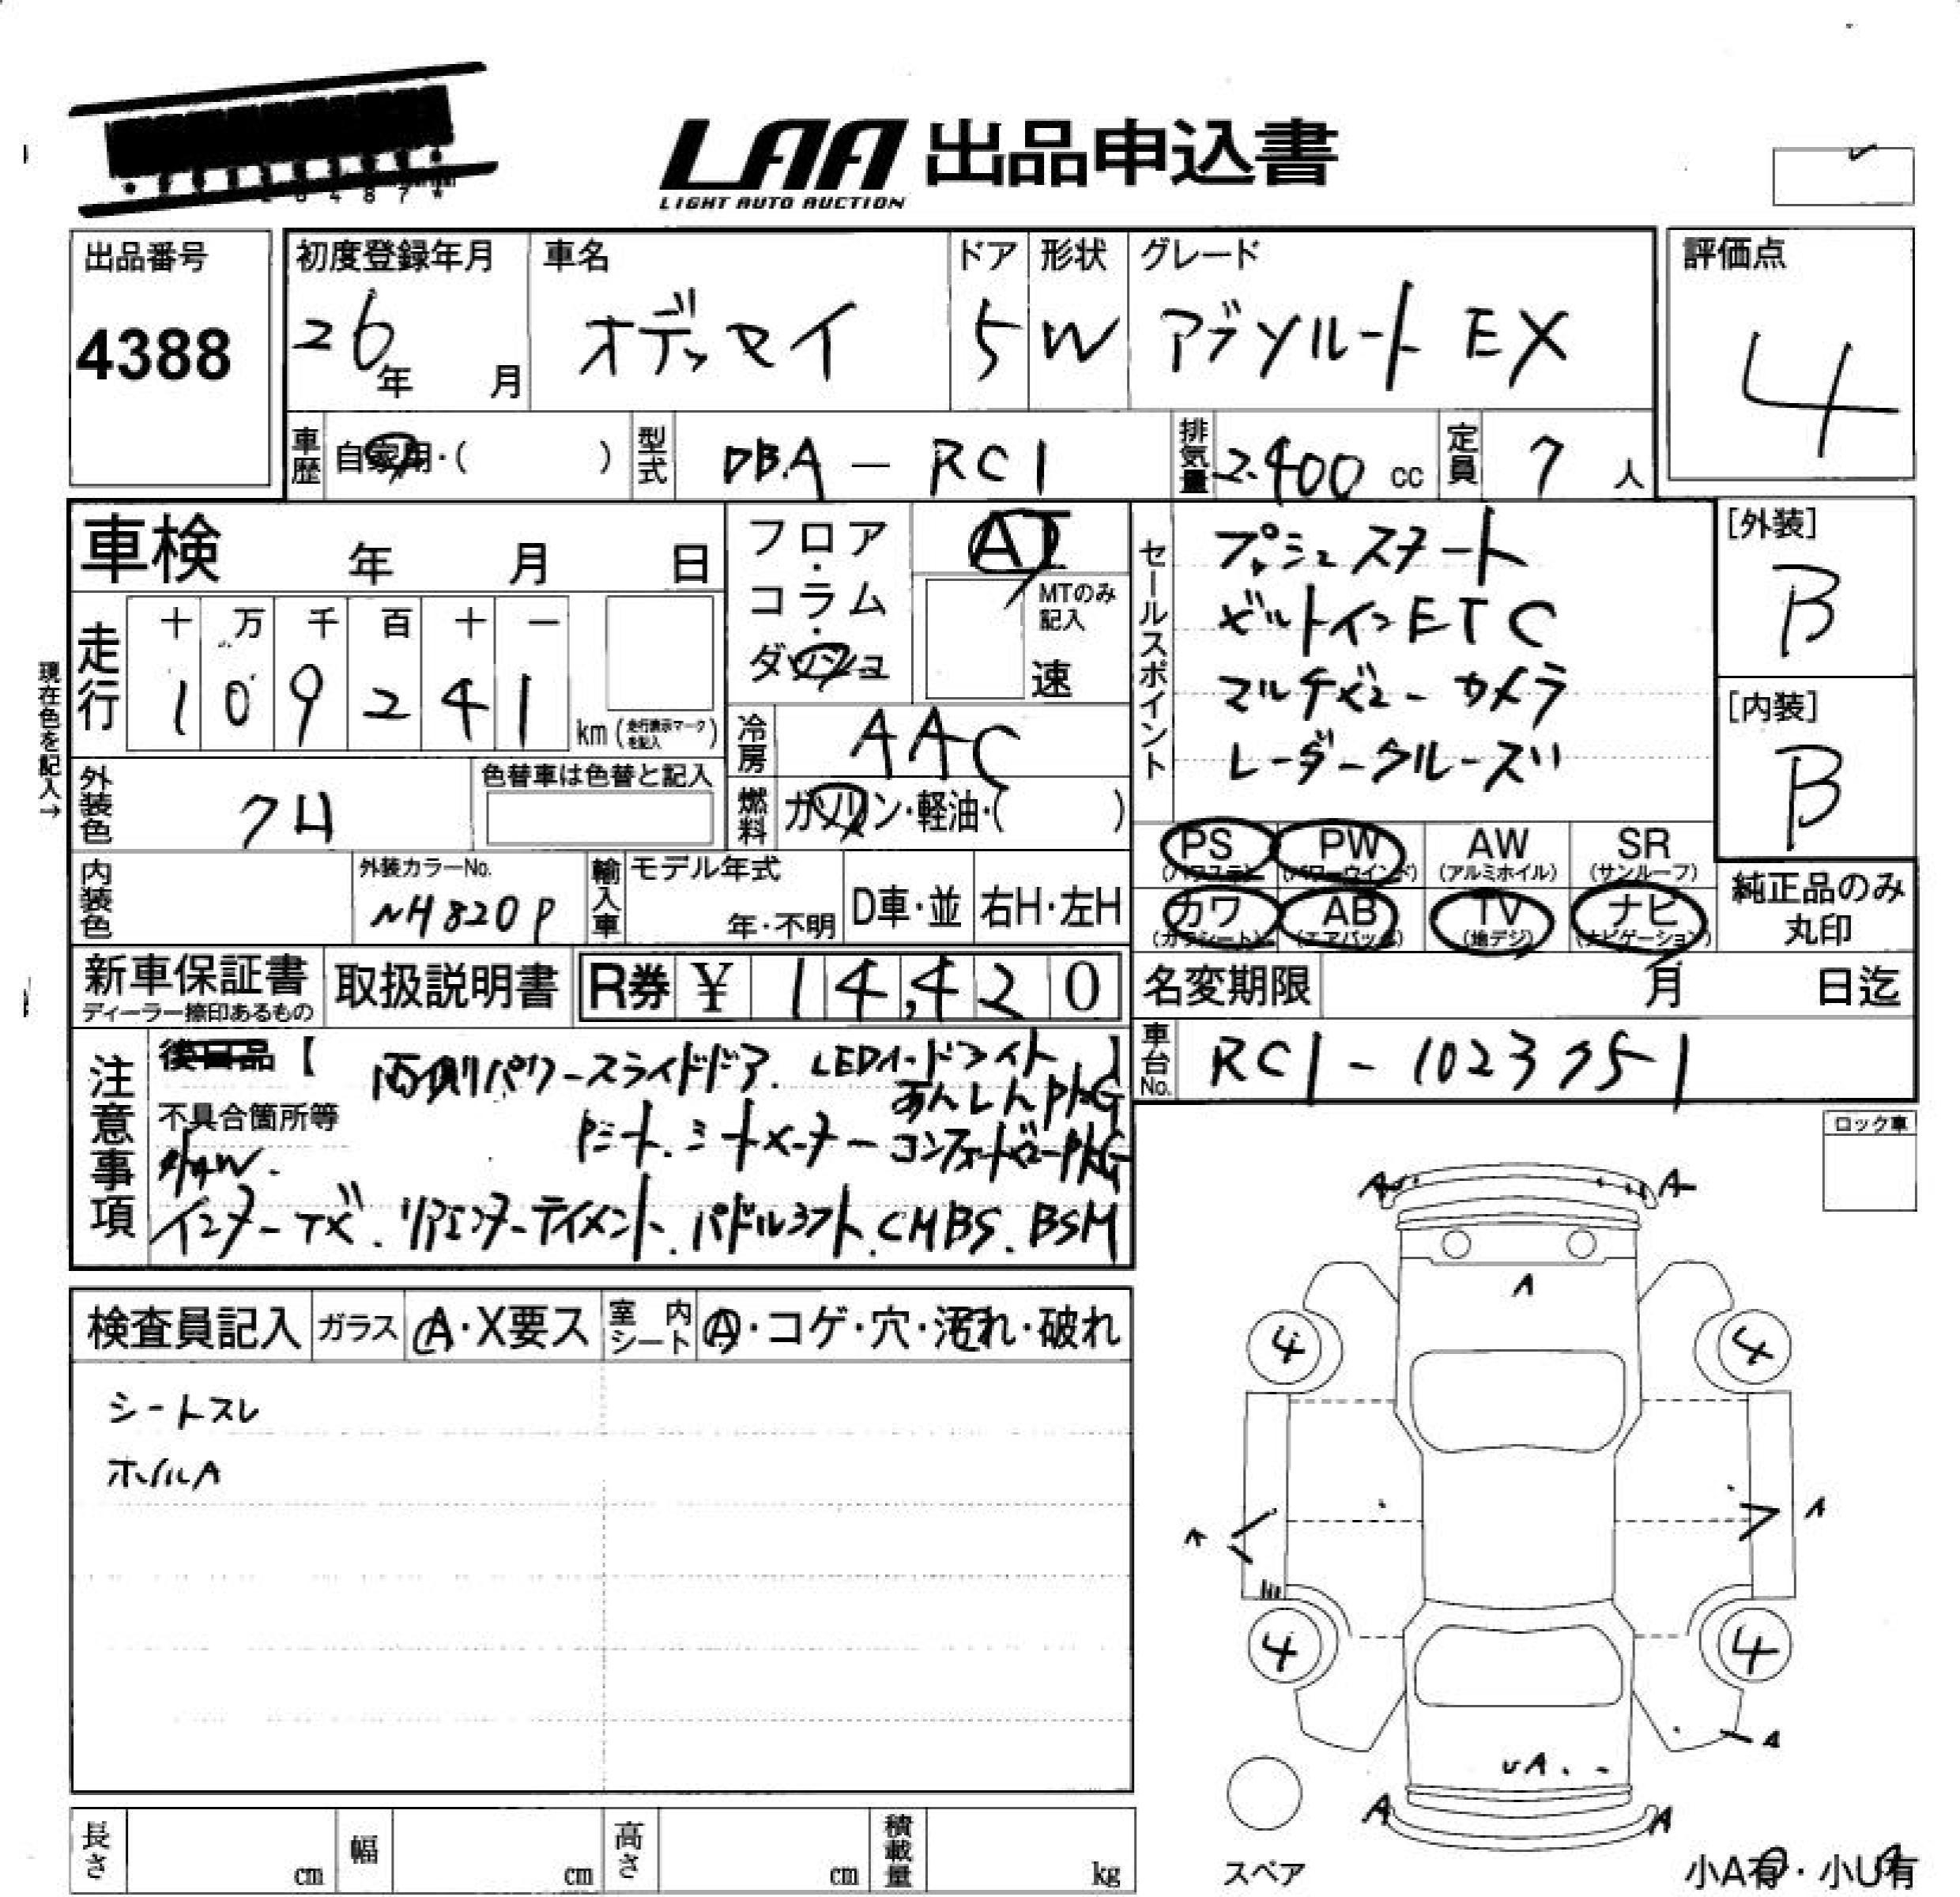 LAA 出品申込書
LIGHT AUTO AUCTION
出品番号
4388
初度登録年月
26年 月
車名
オデッセイ
ドア
5
形状
W
グレード
アブソルート EX
評価点
4
車歴
自家用・( )
型式
DBA - RC1
排気量
2.400 cc
定員
7 人
車検 年 月 日
走行
十 万 千 百 十 一
1 0 9 2 4 1
km (走行表示マークを記入)
現在色を記入→
外装色
クロ
色替車は色替と記入
内装色
外装カラーNo.
NH820P
フロア・コラム・ダッシュ
AT
MTのみ記入
速
冷房
AAC
燃料
ガソリン・軽油・( )
輸入車
モデル年式
年・不明
D車・並
右H・左H
セールスポイント
プッシュスタート
ビルトインETC
マルチビューカメラ
レーダークルーズ
PS (パワステ)
PW (パワーウインド)
AW (アルミホイル)
SR (サンルーフ)
カワ (カワシート)
AB (エアバック)
TV (地デジ)
ナビ (ナビゲーション)
[外装]
B
[内装]
B
純正品のみ丸印
新車保証書
ディーラー捺印あるもの
取扱説明書
R券 ¥ 14,420
名変期限 月 日迄
車台No.
RC1-1023751
注意事項
後日品【 】
両側パワースライドドア. LEDヘッドライト
あんしんPKG
不具合箇所等
シートメーター コンフォートビューPKG
インターナビ. リアエンターテイメント. パドルシフト. CMBS. BSM
ロック車
検査員記入
ガラス
A・X要ス
室内シート
A・コゲ・穴・汚れ・破れ
シートスレ
ホイルA
A A
A
4 4
A A
4 4
A
UA
A A
スペア
小A有・小U有
長さ cm
幅 cm
高さ cm
積載量 kg